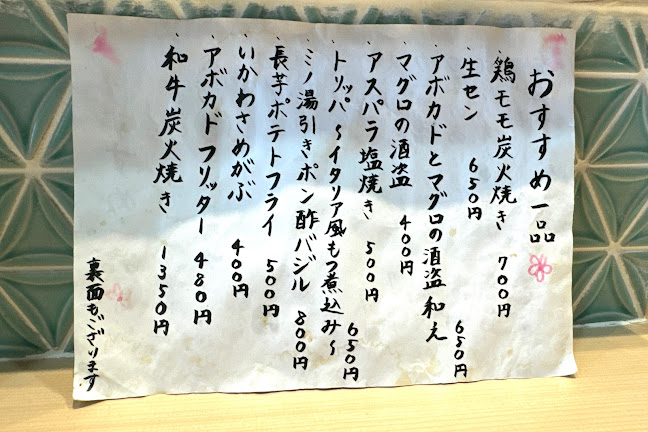 おすすめ一品
、鶏モモ炭火焼き 700円
、生セン 650円
、アボカドとマグロの酒盗和え 650円
、マグロの酒盗 400円
、アスパラ塩焼き 500円
、トリッパ 〜イタリア風もつ煮込み〜 650円
、ミノ湯引きポン酢バジル 800円
、長芋ポテトフライ 500円
、いかわさめがぶ 400円
、アボカドフリッター 480円
、和牛炭火焼き 1350円
裏面もございます